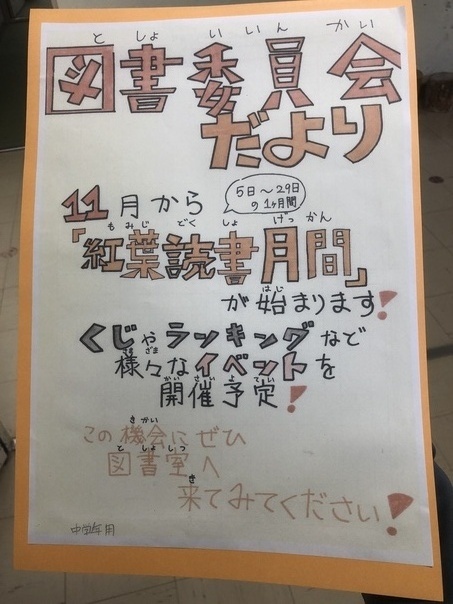 としょいいんかい
図書委員会
だより
11月から
5日～29日
の1ヶ月間
もみじどくしょげっかん
「紅葉読書月間」
はじ
が始まります!
くじやランキングなど
さまざま
様々なイベントを
かいさいよてい
開催予定!
きかい
この機会にぜひ
としょしつ
図書室へ
き
来てみてください!
中学年用